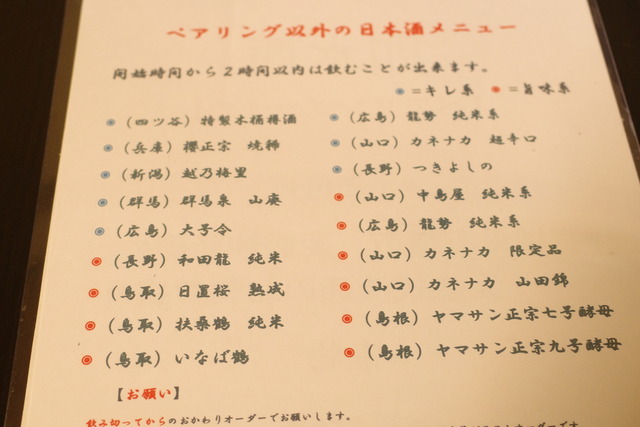 ペアリング以外の日本酒メニュー
開始時間から２時間以内は飲むことが出来ます。
◉＝キレ系 ◉＝旨味系
◉（四ツ谷）特製木桶樽酒
◉（兵庫）櫻正宗 焼稀
◉（新潟）越乃梅里
◉（群馬）群馬泉 山廃
◉（広島）大号令
◉（長野）和田龍 純米
◉（鳥取）日置桜 熟成
◉（鳥取）扶桑鶴 純米
◉（鳥取）いなば鶴
◉（広島）龍勢 純米系
◉（山口）カネナカ 超辛口
◉（長野）つきよしの
◉（山口）中島屋 純米系
◉（広島）龍勢 純米系
◉（山口）カネナカ 限定品
◉（山口）カネナカ 山田錦
◉（島根）ヤマサン正宗七号酵母
◉（島根）ヤマサン正宗九号酵母
【お願い】
飲み切ってからのおかわりオーダーでお願いします。